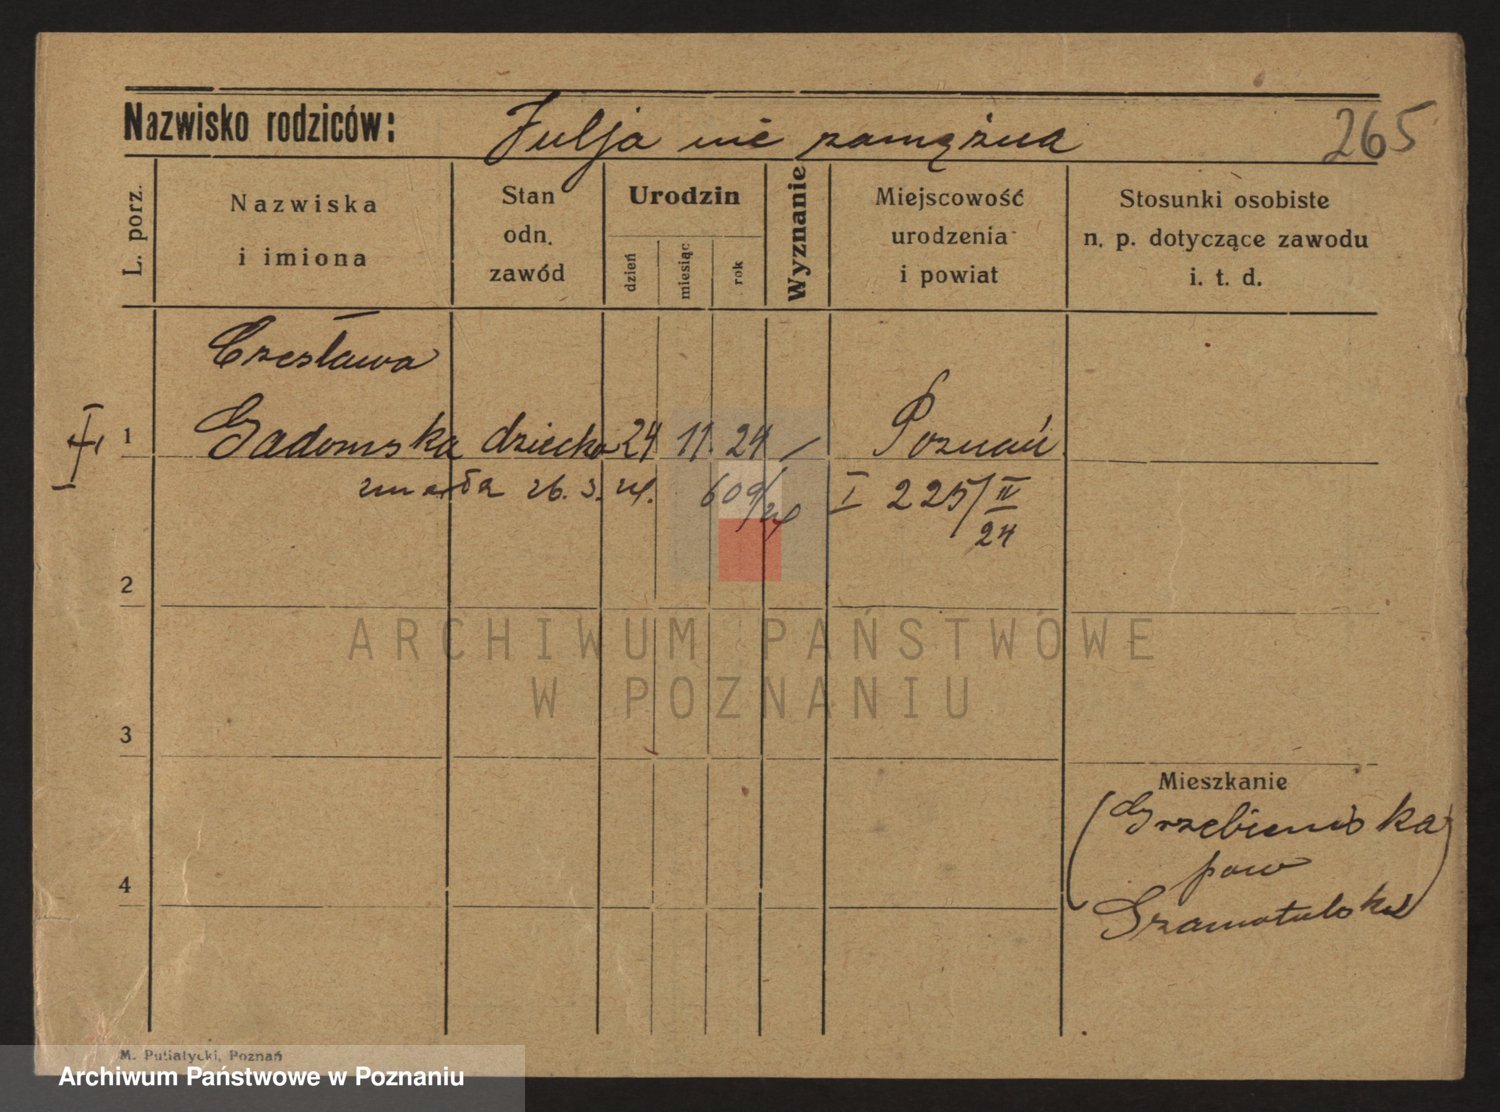 Nazwisko rodziców: Julja nie zamężna 265
L. porz.
Nazwiska
i imiona
Stan
odn.
zawód
Urodzin
dzień
miesiąc
rok
Wyznanie
Miejscowość
urodzenia
i powiat
Stosunki osobiste
n. p. dotyczące zawodu
i. t. d.
Czesława
1 Gadomska dziecko 24 11. 24 — Poznań
zmarła 26. 3. 24. 609/24 I 225/IV
24
2
ARCHIWUM PAŃSTWOWE
W POZNANIU
3
Mieszkanie
(Grzebienisko)
pow
4
Szamotulski
M. Putiatycki, Poznań
Archiwum Państwowe w Poznaniu